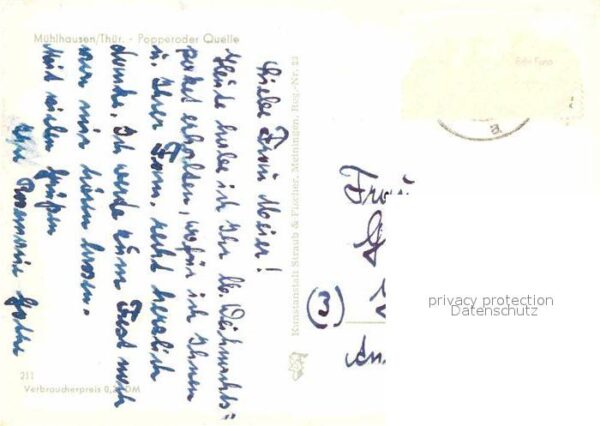 Mühlhausen/Thür. - Popperoder Quelle
Liebe Frau Meier!
Heute habe ich Ihr lb. Weihnachts=
paket erhalten, wofür ich Ihnen
u. Ihrer Fam. recht herzlich
danke. Ich werde zum Fest noch
von mir hören lassen.
Mit vielen Grüßen
Rosemarie
211
Verbraucherpreis 0,20 DM
Kunstanstalt Straub & Fischer, Meiningen, Reg.-Nr. 23
Frau
(3)
a.
privacy protection
Datenschutz